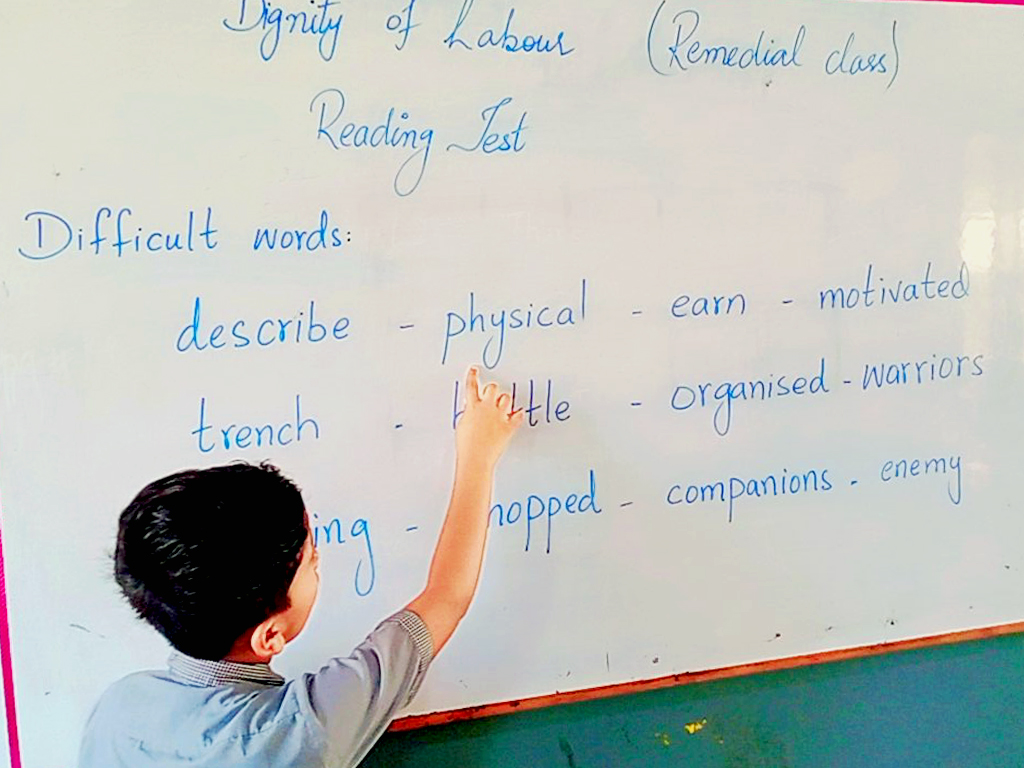 Dignity of Labour (Remedial class)
Reading Test
Difficult words:
describe - physical - earn - motivated
trench - organised - warriors
- companions - enemy